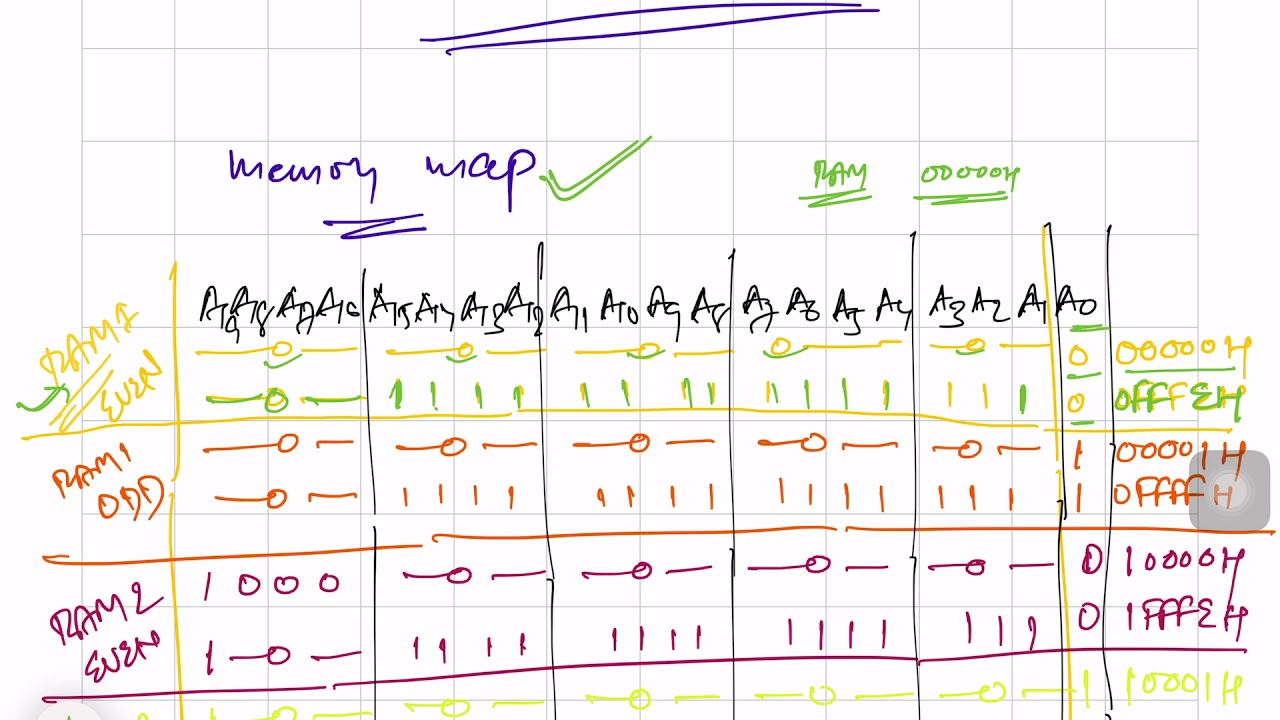 memory map
RAM 00000H
A19 A18 A17 A16 A15 A14 A13 A12 A11 A10 A9 A8 A7 A6 A5 A4 A3 A2 A1 A0
RAM1 EVEN
0 0 0 0 0 0 00000H
0 1 1 1 1 1 1 1 1 1 1 1 1 1 1 1 0 0FFFEH
RAM1 ODD
0 0 0 0 0 1 00001H
0 1 1 1 1 1 1 1 1 1 1 1 1 1 1 1 1 0FFFFH
RAM2 EVEN
1 0 0 0 0 0 0 0 0 10000H
1 0 1 1 1 1 1 1 1 1 1 1 1 1 1 1 1 0 1FFFEH
0 0 0 0 1 10001H